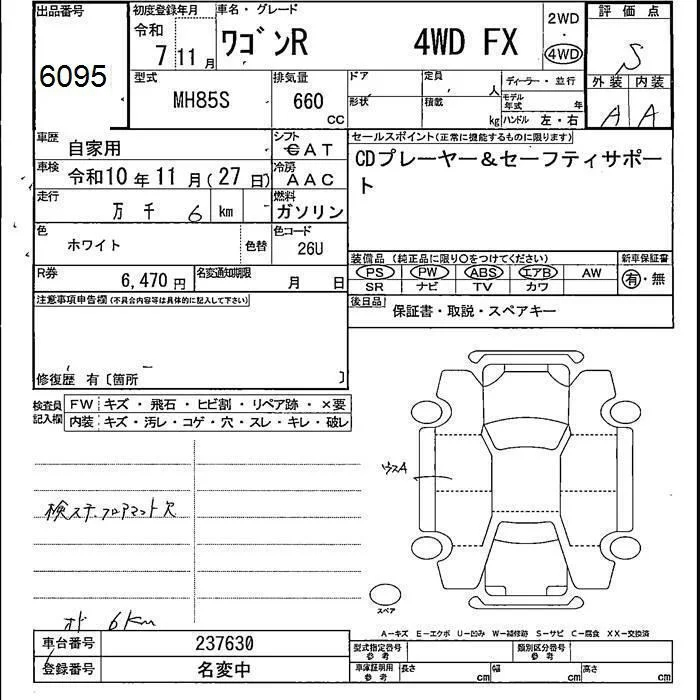 出品番号
6095
初度登録年月
令和
7 11 月
車名・グレード
ワゴンR 4WD FX
2WD
4WD
評価点
S
外装 内装
A A
型式
MH85S
排気量
660
CC
ドア
形状
定員
人
積載
kg
ディーラー・並行
モデル年式 年
ハンドル 左・右
車歴
自家用
シフト
CAT
車検
令和10年11月(27日)
冷房
AAC
走行
万 千 6 km
燃料
ガソリン
色
ホワイト
色替
色コード
26U
R券
6,470 円
名変通知期限
月 日
セールスポイント(正常に機能するものに限ります)
CDプレーヤー&セーフティサポー
ト
装備品 (純正品に限り○をつけてください)
PS PW ABS エアB AW
SR ナビ TV カワ
新車保証書
有・無
後日品
保証書・取説・スペアキー
注意事項申告欄(不具合内容等は具体的に記入して下さい)
修復歴 有〔箇所 〕
検査員
記入欄
FW キズ・飛石・ヒビ割・リペア跡・×要
内装 キズ・汚レ・コゲ・穴・スレ・キレ・破レ
ウスA
検ステ.フロアマット欠
オド 6km
スペア
A-キズ E-エクボ U-凹み W-補修跡 S-サビ C-腐食 XX-交換済
車台番号
237630
登録番号
名変中
型式指定番号
参考
類別区分番号
参考
車庫証明用
参考
長さ cm
幅 cm
高さ cm